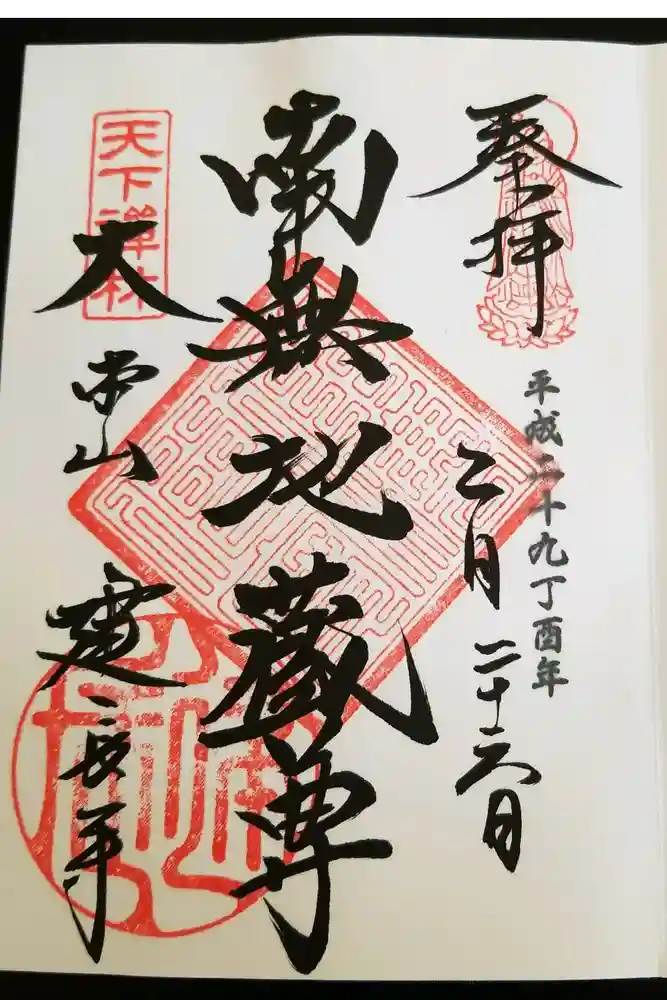 奉拝
平成二十九丁酉年
二月二十六日
南無地蔵尊
天下禅林
大本山建長寺